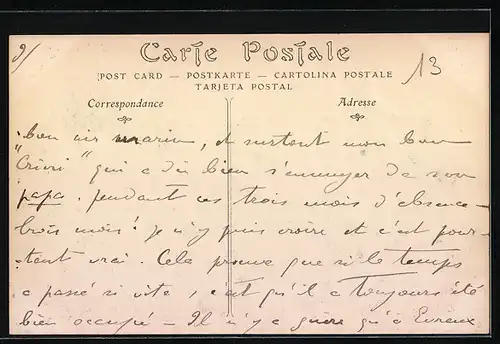 9/
Carte Postale
13
POST CARD — POSTKARTE — CARTOLINA POSTALE
TARJETA POSTAL
Correspondance
Adresse
bon air marin, et surtout mon bon
"Crivri" qui a dû bien s'ennuyer de son
papa. pendant ces trois mois d'absence
trois mois! je n'y puis croire et c'est pour-
tant vrai. Cela prouve que si le temps
a passé si vite, c'est qu'il a toujours été
bien occupé — Il n'y a guère qu'à Evreux